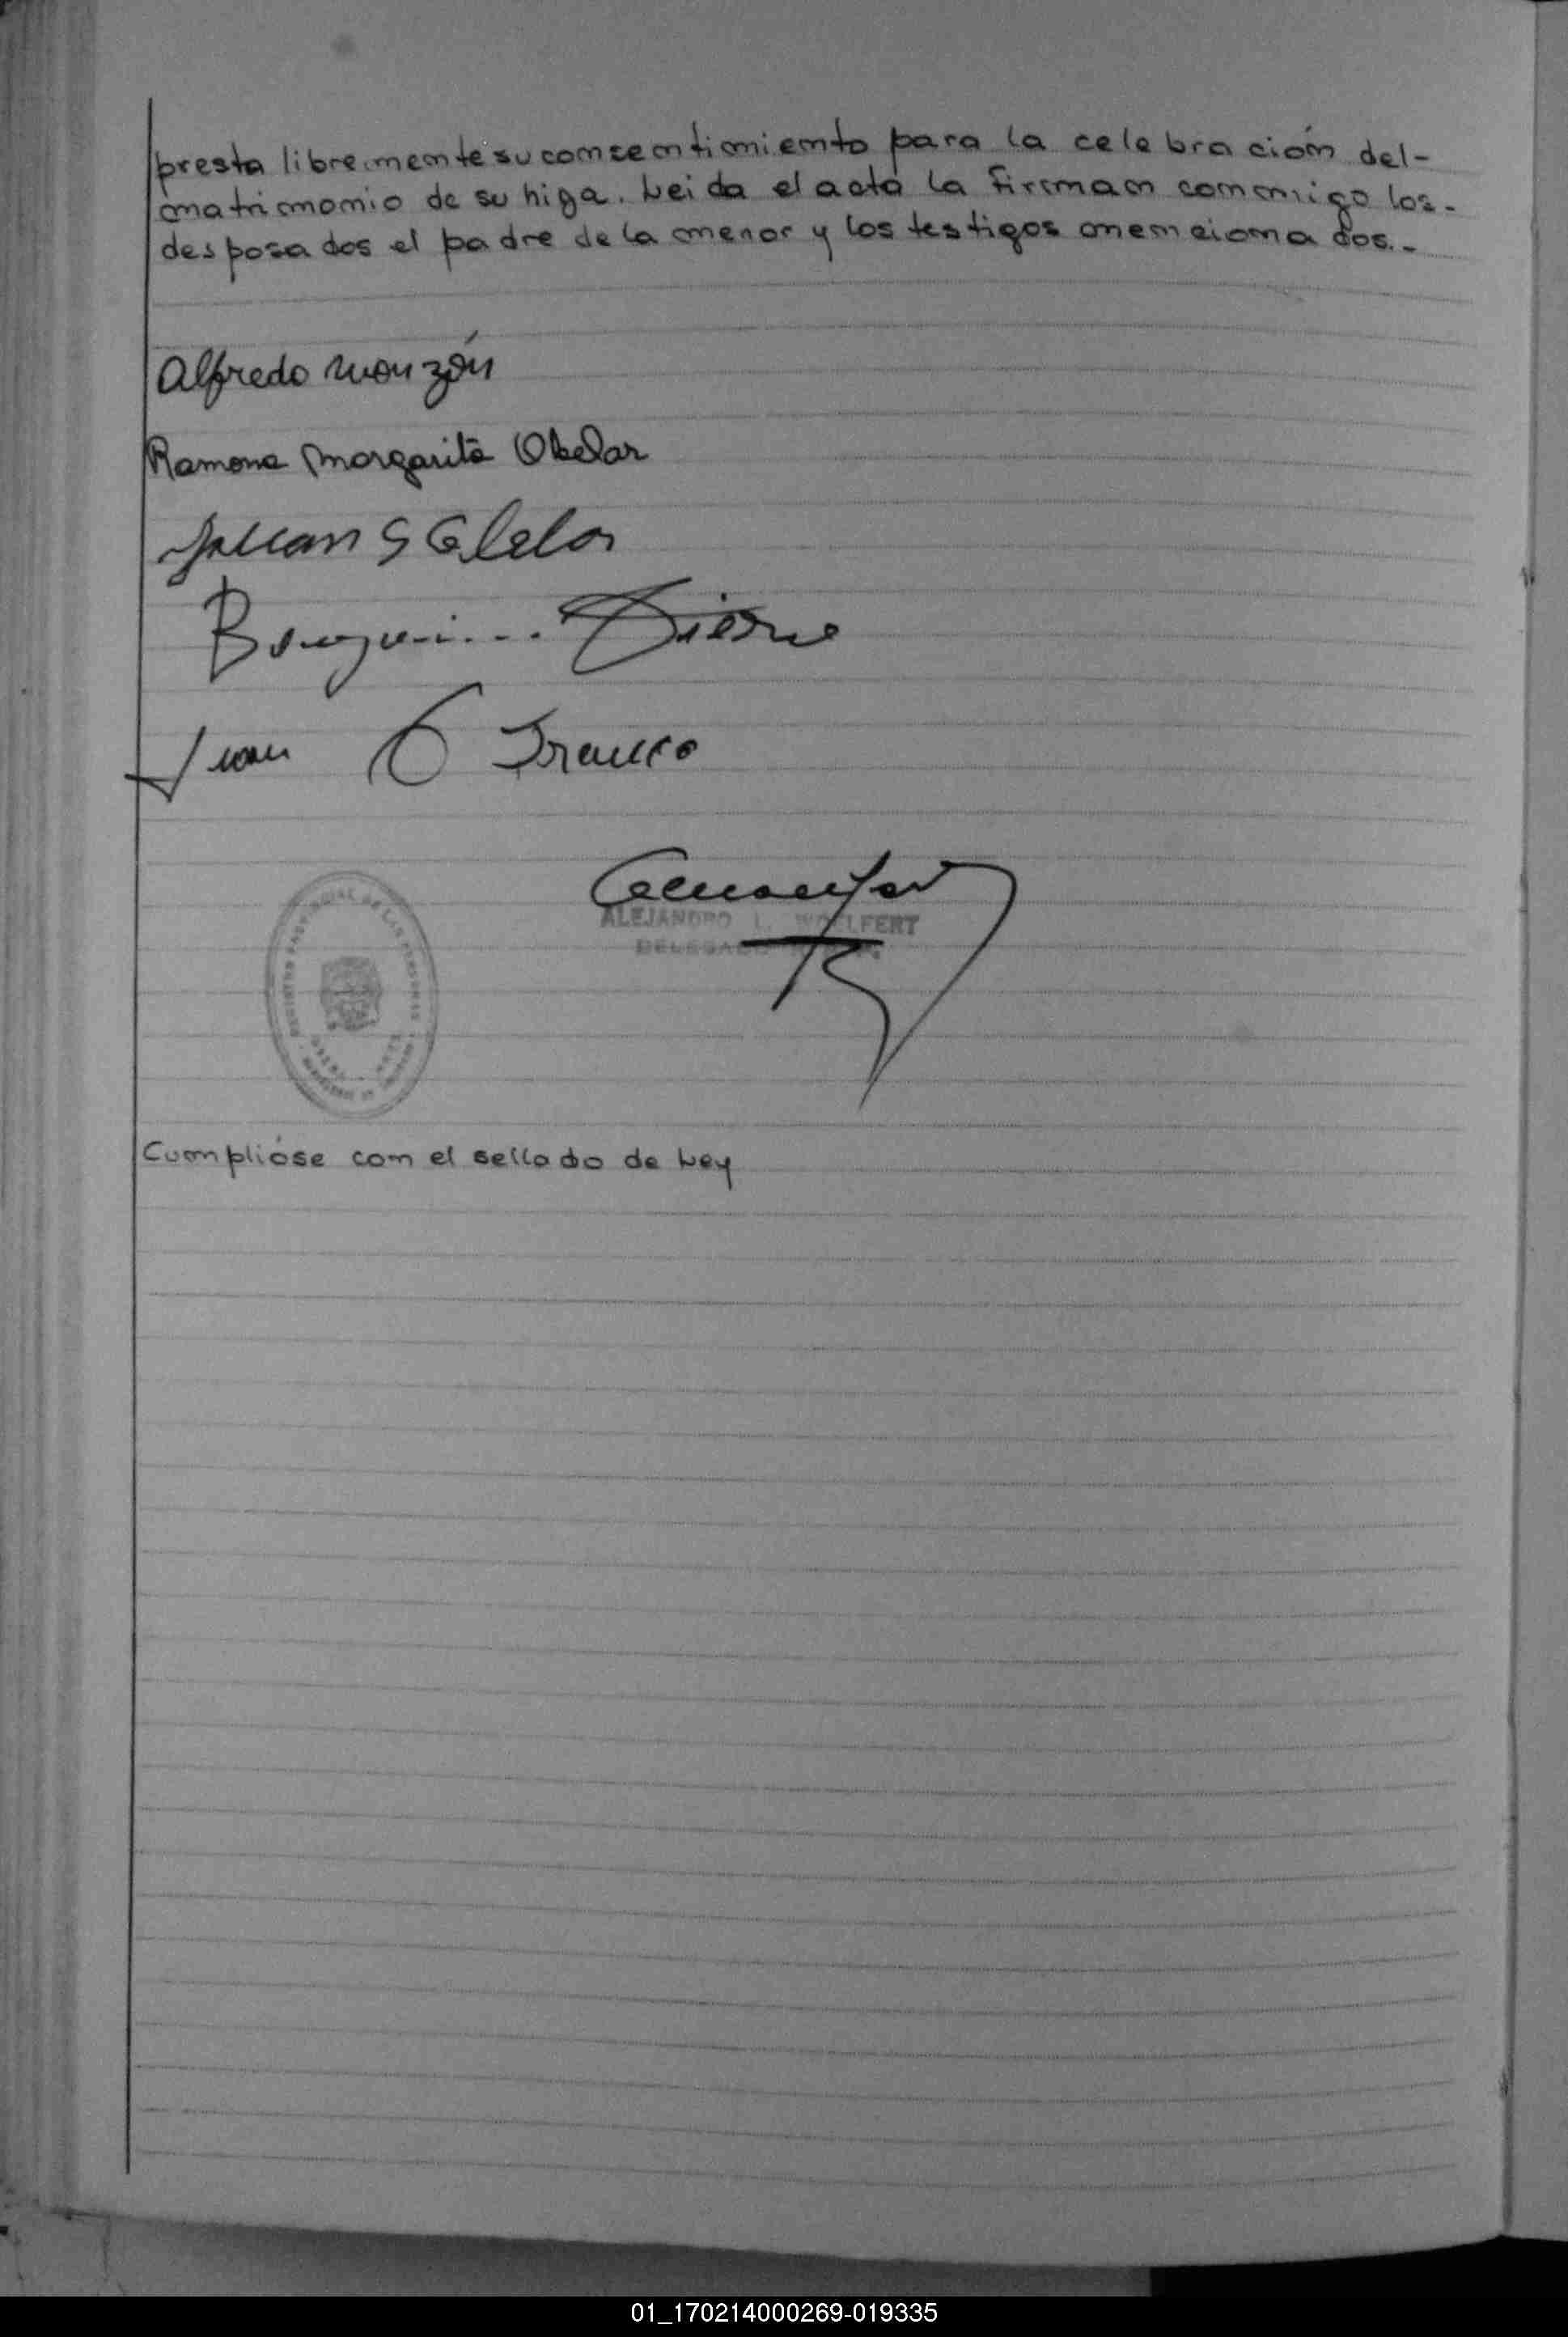 presta libremente su consentimiento para la celebración del-
matrimonio de su higa. Leida el acta la firman conmigo los-
desposados el padre de la menor y los testigos mencionados.-
Alfredo Monzón
Ramona Margarita Obelar
Juan
Franco
ALEJANDRO L. WOELFERT
DELEGADO
REGISTRO PROVINCIAL DE LAS PERSONAS
Cumplióse con el sellado de Ley
01_170214000269-019335